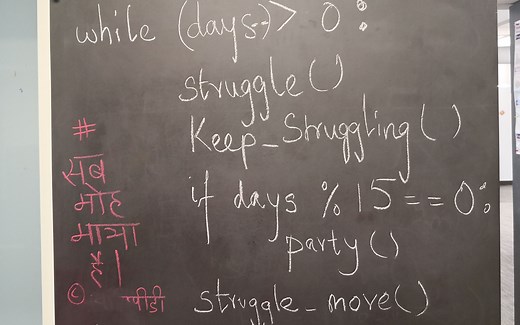 while (days-) > 0 :
struggle()
Keep_Struggling()
if days % 15 == 0:
party()
struggle_move()
#
सब
मोह
माया
है।
© पीडी